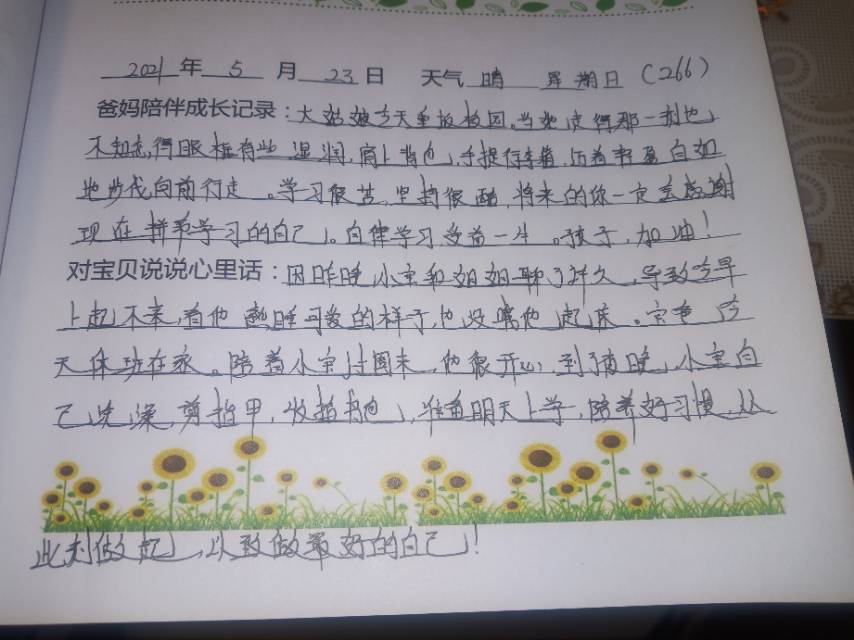 2021年5月23日 天气 晴 星期日（266）
爸妈陪伴成长记录：大姑娘今天重返校园。当她走得那一刻也
不知走,得眼框有些湿润,肩上背包,手提行李箱,历着
地步伐向前行走。学习很苦,坚持很酷,将来的你一定会感谢
现在拼命学习的自己。自律学习,受益一生。孩子,加油!
对宝贝说说心里话：因昨晚小宝和姐姐聊了许久,导致今早
上起不来,看他熟睡可爱的样子,也没喊他起床。宝爸今
天休班在家。陪着小宝,他很开心,到了晚,小宝自
己洗澡,剪指甲,收拾书包,准备明天上学,陪养好习惯,从
此刻做起,以致做最好的自己!